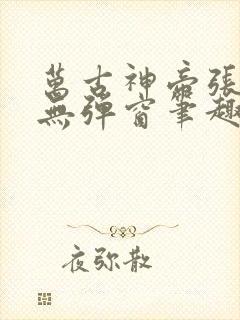 萬古神帝張
無彈窗筆趣
夜弥散